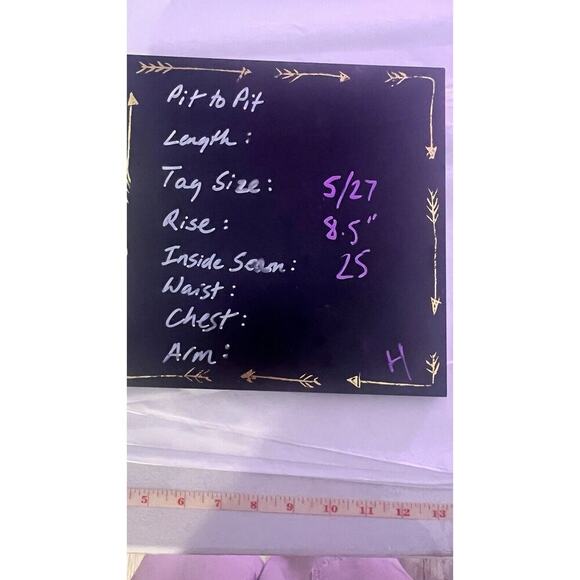 Pit to Pit
Length:
Tag Size: 5/27
Rise: 8.5"
Inside Seam: 25
Waist:
Chest:
Arm:
H
5 6 7 8 9 10 11 12 13